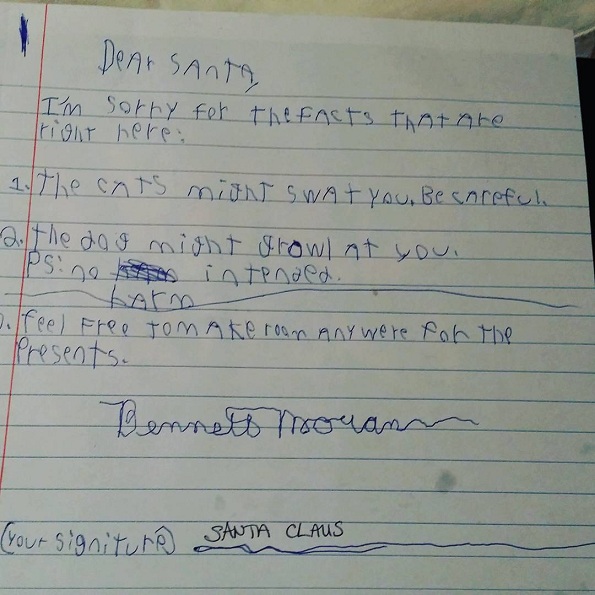 Dear Santa,
I'm sorry for the facts that are
right here:
1. the cats might swat you. Be careful.
2. the dog might growl at you.
PS: no intended.
harm
feel Free to make room anywere for the
presents.
Bennett
(your signiture) SANTA CLAUS